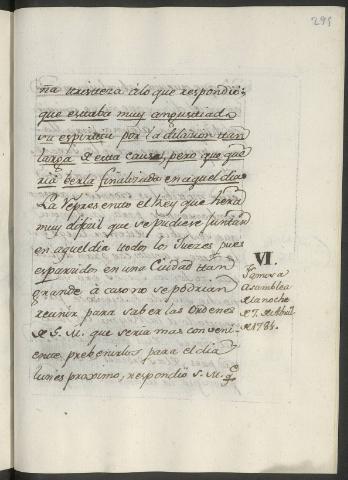 291
ña tristeza á lo que respondió:
que estaba muy angustiado
su espiritu por la dilacion tan
larga de esta causa, pero que que
ria berla finalizada en aquel dia
La representó el Rey que hera
muy dificil que se pudiese juntar
en aquel dia todos los Juezes pues
esparcidos en una Ciudad tan
grande á caso no se podrian
reunir para saber las Ordenes
de S. M. que seria mas conveni
ente prebenirlos para el dia
lunes proximo, respondió S. M.
VI.
Famosa
Asamblea
de la noche
de 7. de Abril
de 1784.